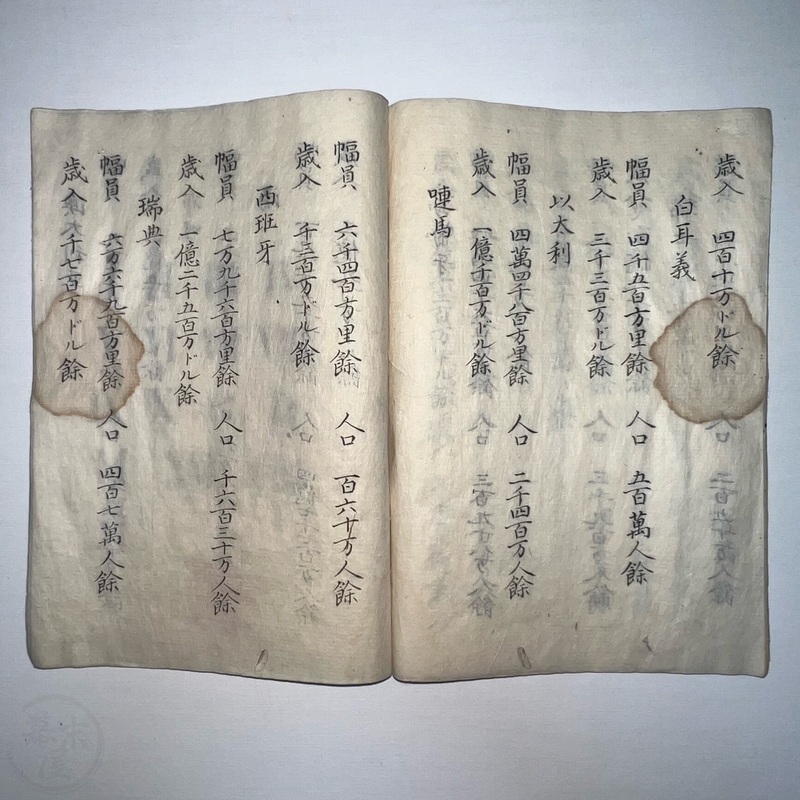 歳入　四百十万ドル餘
白耳義
幅員　四千五百方里餘　人口　五百萬人餘
歳入　三千三百万ドル餘
以太利
幅員　四萬四千八百方里餘　人口　二千四百万人餘
歳入　一億千百万ドル餘
嗹馬
幅員　六千四百方里餘　人口　百六十万人餘
歳入　千三百万ドル餘
西班牙
幅員　七万九千六百方里餘　人口　千六百三十万人餘
歳入　一億二千五百万ドル餘
瑞典
幅員　六万六千九百方里餘　人口　四百七萬人餘
歳入　千七百万ドル餘